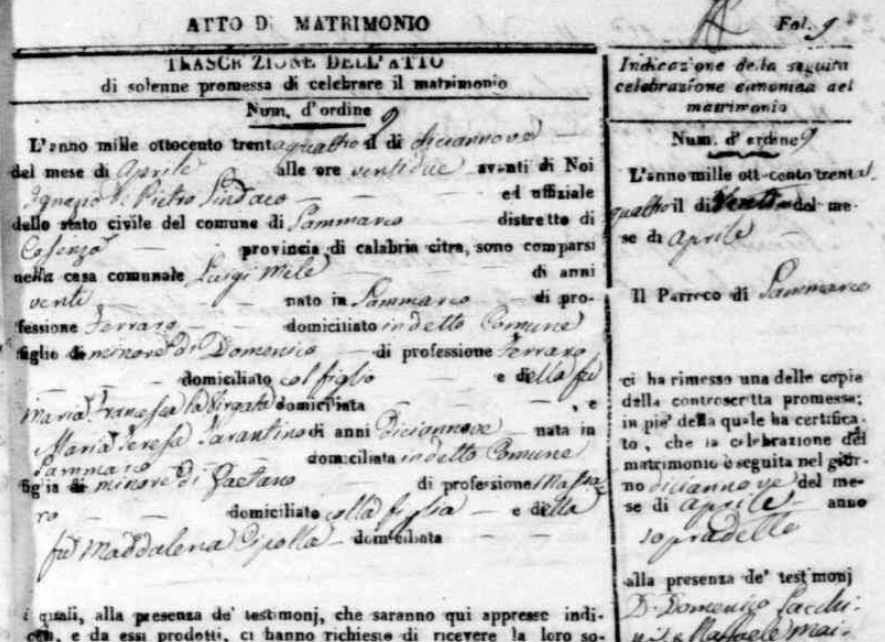 ATTO DI MATRIMONIO
TRASCRIZIONE DELL'ATTO
di solenne promessa di celebrare il matrimonio
Num. d'ordine 9
L'anno mille ottocento trentaquattro il di diciannove
del mese di Aprile alle ore ventidue avanti di Noi
Ignazio Di Pietro Sindaco ed uffiziale
dello stato civile del comune di Sammarco distretto di
Cosenza provincia di calabria citra, sono comparsi
nella casa comunale Luigi Mele di anni
venti nato in Sammarco di pro-
fessione Ferraro domiciliato in detto Comune
figlio minore di Domenico di professione Ferraro
domiciliato col figlio e della fu
Maria Francesca la Virgata domiciliata , e
Maria Teresa Tarantino di anni Diciannove nata in
Sammarco domiciliata in detto Comune
figlia minore di Gaetano di professione Massa-
ro domiciliato colla figlia e della
fu Maddalena Cipolla domiciliata
i quali, alla presenza de' testimonj, che saranno qui appresso indi-
cati, e da essi prodotti, ci hanno richiesto di ricevere la loro so-
Fol. 9
Indicazione della seguita
celebrazione canonica del
matrimonio
Num. d'ordine 9
L'anno mille ottocento trenta
quattro il di Venti del me-
se di Aprile
Il Parroco di Sammarco
ci ha rimesso una delle copie
della controscritta promessa;
in pie' della quale ha certifica-
to, che la celebrazione del
matrimonio è seguita nel gior-
no diciannove del me-
se di Aprile anno
sopradetto
alla presenza de' testimonj
D. Domenico Sacchi-
Raffaele Mai-